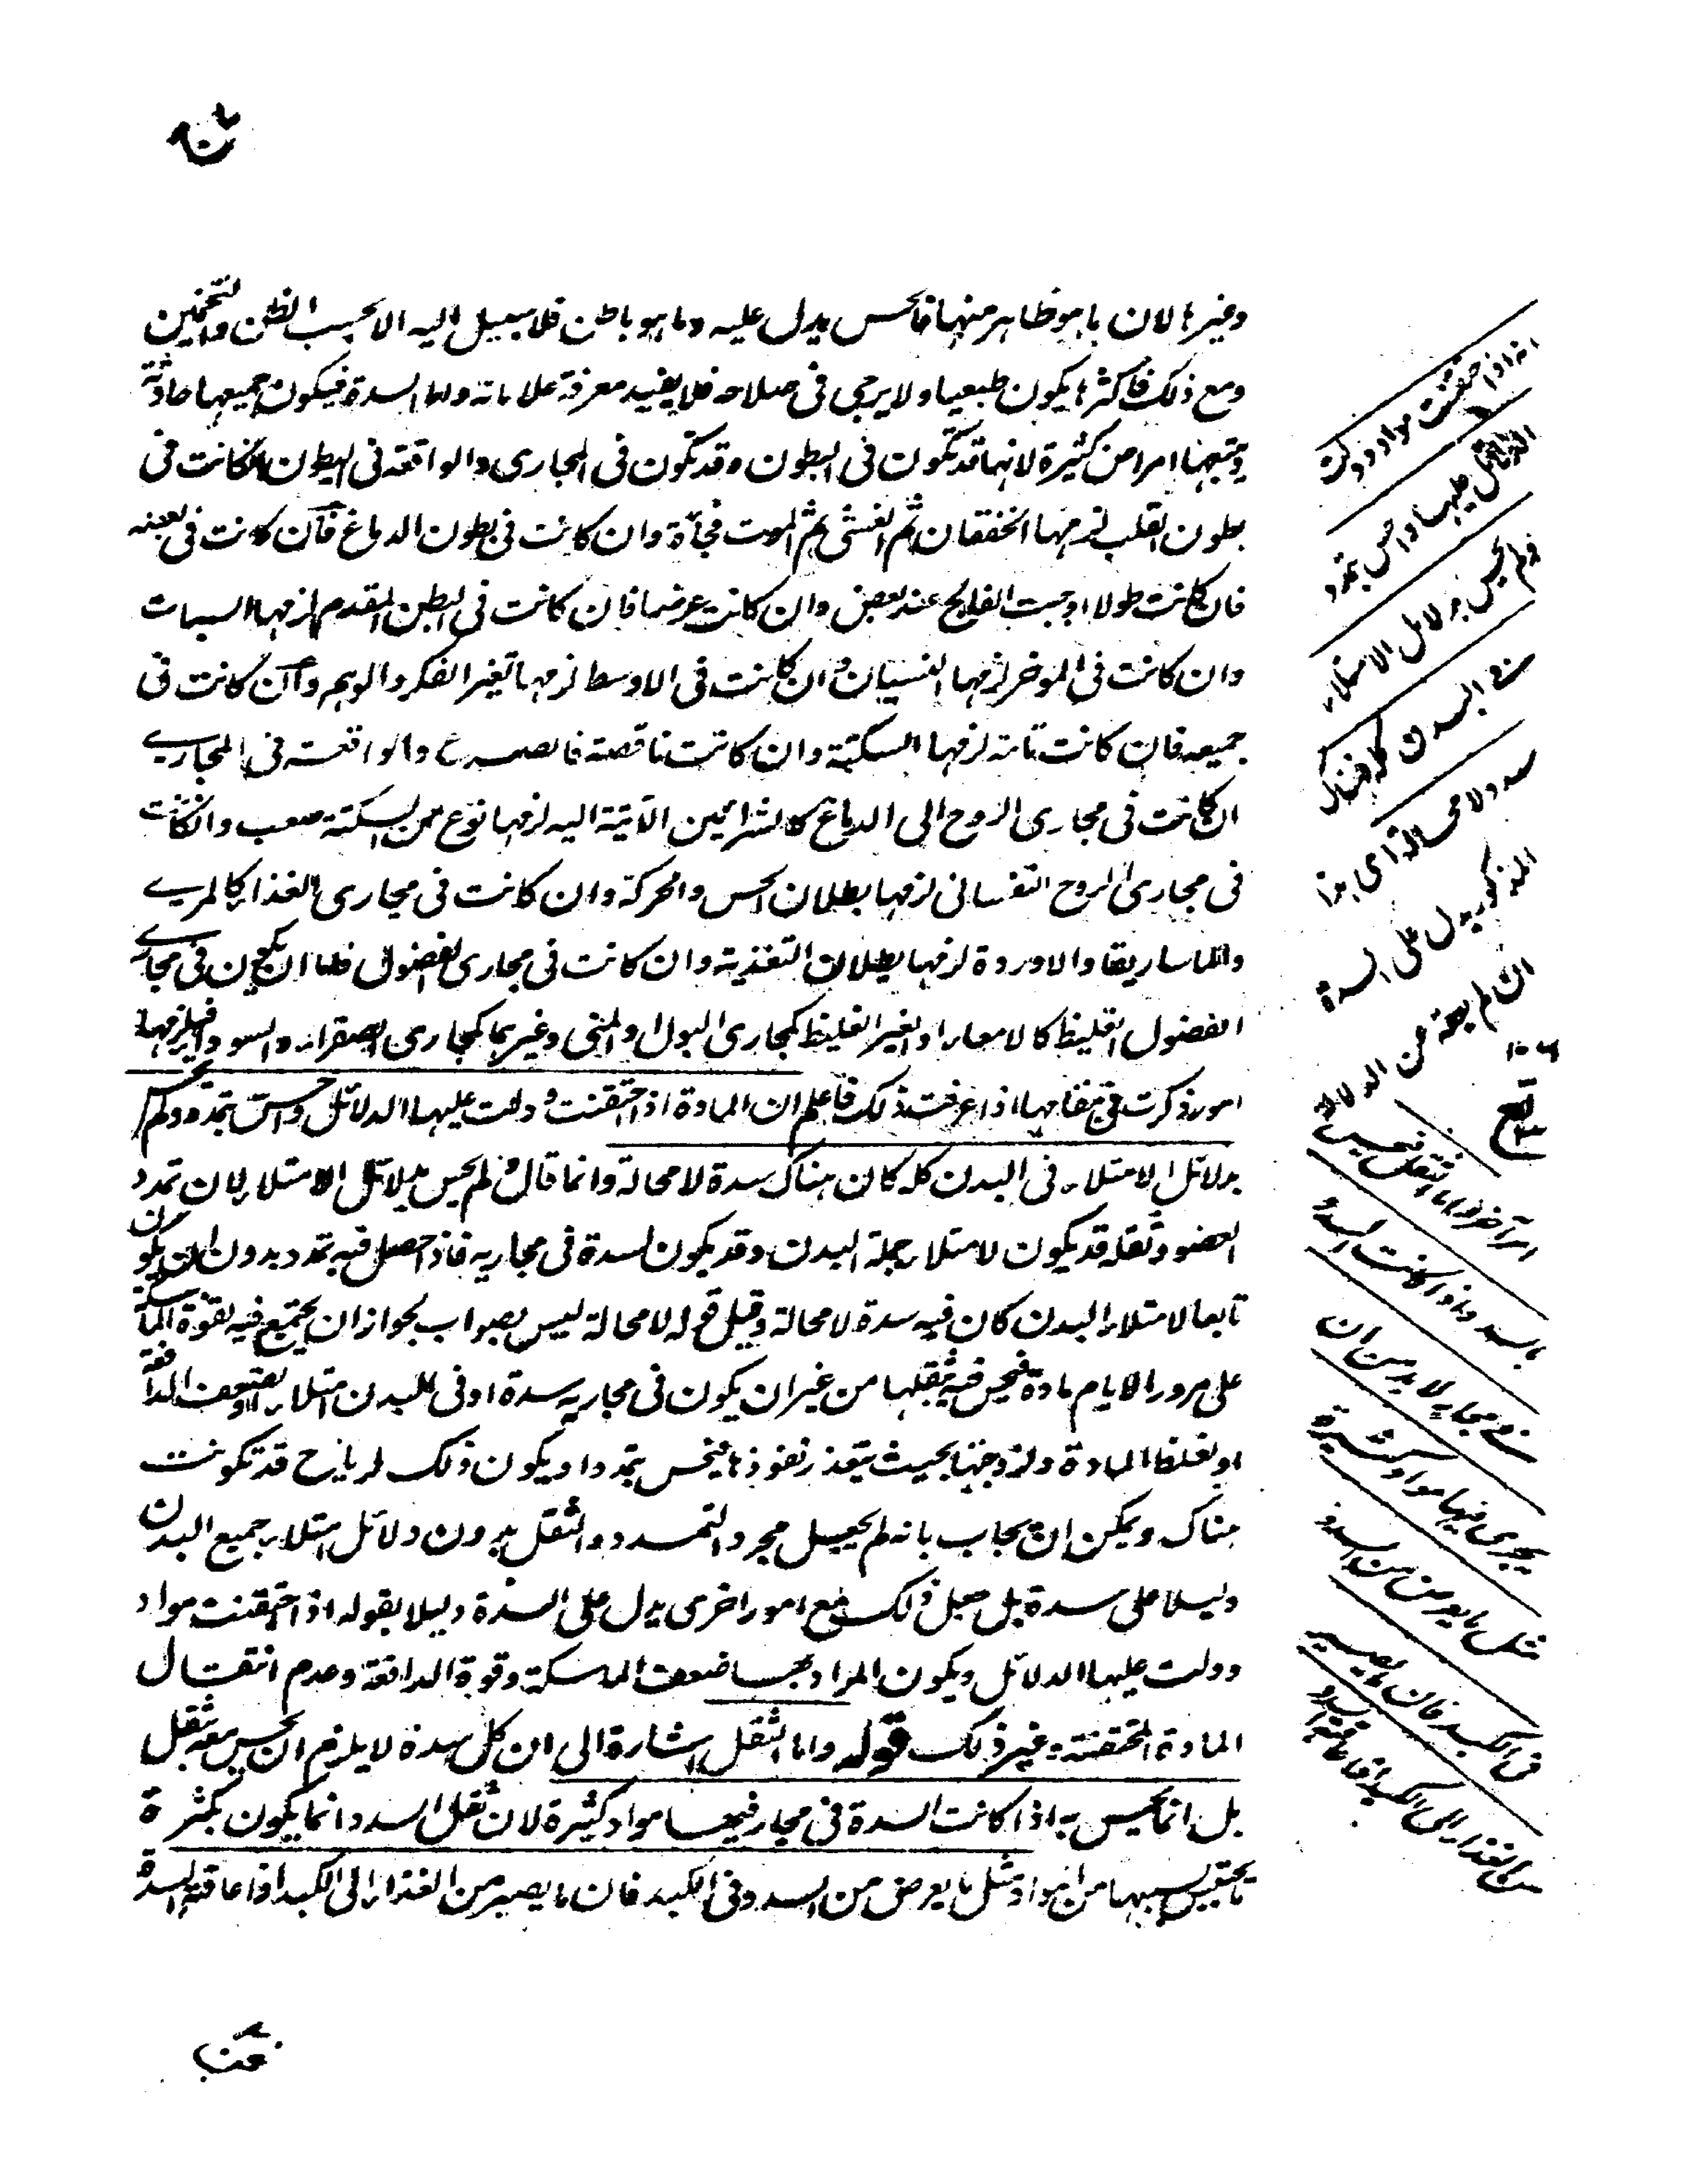 وغيرها لان ما هو ظاهر منها فالحس يدل عليه وما هو باطن فلا سبيل اليه الا بحسب الظن والتخمين
ومع ذلك فاكثرها يكون طبعيا ولا يرجى فى صلاحه فلا يفيد معرفة علاماته واما السدة فيكون جميعها حادثة
ويتبعها امراض كثيرة لانها قد تكون فى البطون وقد تكون فى المجارى والواقعة فى البطون ان كانت فى
بطون القلب لزمها الخفقان ثم الغشى ثم الموت فجأة وان كانت فى بطون الدماغ فان كانت فى بعضه
فان كانت طولا اوجبت الفالج عند بعض وان كانت عرضا فان كانت فى البطن المقدم لزمها السبات
وان كانت فى الموخر لزمها النسيان وان كانت فى الاوسط لزمها تغير الفكر والوهم وان كانت فى
جميعه فان كانت تامة لزمها السكتة وان كانت ناقصة فالصرع والواقعة فى المجارى
ان كانت فى مجارى الروح الى الدماغ كالشرائين الآتية اليه لزمها نوع من السكتة صعب وان كانت
فى مجارى الروح النفسانى لزمها بطلان الحس والحركة وان كانت فى مجارى الغذاء كالمرى
والماساريقا والاوردة لزمها بطلان التغذية وان كانت فى مجارى الفضول فاما ان يكون فى مجارى
الفضول الغليظ كالامعاء او الغير الغليظ كمجارى البول والمنى وغيرهما كمجارى الصفراء والسوداء فيلزمها
امور ذكرت فى مقامها اذا عرفت ذلك فاعلم ان المادة اذا احتقنت ودلت عليها الدلائل واحس بتمدد ولم يحس
بدلائل الامتلاء فى البدن كله كان هناك سدة لا محالة وانما قال ولم يحس بدلائل الامتلاء لان تمدد
العضو وثقله قد يكون لامتلاء جملة البدن وقد يكون لسدة فى مجاريه فاذا حصل فيه تمدد بدون ان يكون
تابعا لامتلاء البدن كان فيه سدة لا محالة وقيل قوله لا محالة ليس بصواب لجواز ان يجتمع فيه لقوة الماسكة
على مرور الايام مادة فيحس فيه بثقلها من غير ان يكون فى مجاريه سدة او فى البدن امتلاء او لضعف الدافعة
او لغلظ المادة ولزوجتها بحيث يتعذر نفوذها فيحس بتمدد او يكون ذلك لرياح قد تكونت
هناك ويمكن ان يجاب بانه لم يجعل مجرد التمدد والثقل بدون دلائل امتلاء جميع البدن
دليلا على سدة بل جعل ذلك مع امور اخرى يدل على السدة دليلا بقوله اذا احتقنت مواد
ودلت عليها الدلائل ويكون المراد بها ضعف الماسكة وقوة الدافعة وعدم انتقال
المادة المحتقنة وغير ذلك قوله واما الثقل اشارة الى ان كل سدة لا يلزم ان يحس معه ثقل
بل انما يحس به اذا كانت السدة فى مجار فيها مواد كثيرة لان ثقل السدد انما يكون بكثرة
ما يحتبس بسببها من المواد مثل ما يعرض من السدد فى الكبد فان ما يصير من الغذاء الى الكبد اذا عاقته السدة
انه اذا احتقنت مواد ودلت
الدلائل عليها واحس بتمدد
ولم يحس بدلائل الامتلاء
فى البدن كله فهناك
سدد لا محالة اى هذا
المذكور يدل على السدة
ان لم يصح من الدلالة
امر آخر واما الثقل فيحس
به اذا كانت السدد
فى مجار لا بد من ان
يجرى فيها مواد كثيرة
مثل ما يعرض من السدد
فى الكبد فان ما يصير
من الغذاء الى الكبد اذا عاقته السدد